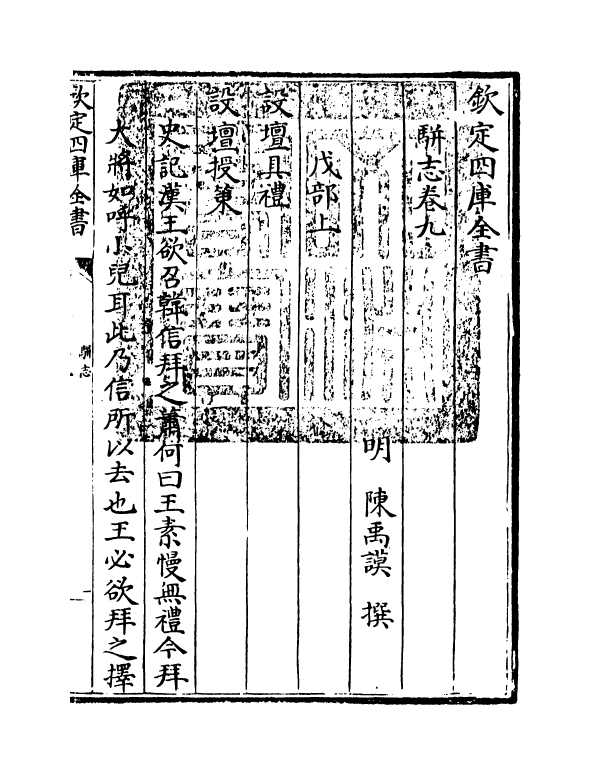 欽定四庫全書
駢志卷九
明　陳禹謨　撰
戊部上
設壇具禮
設壇授策
史記漢王欲召韓信拜之蕭何曰王素慢無禮今拜
大將如呼小兒耳此乃信所以去也王必欲拜之擇
欽定四庫全書
駢志
一